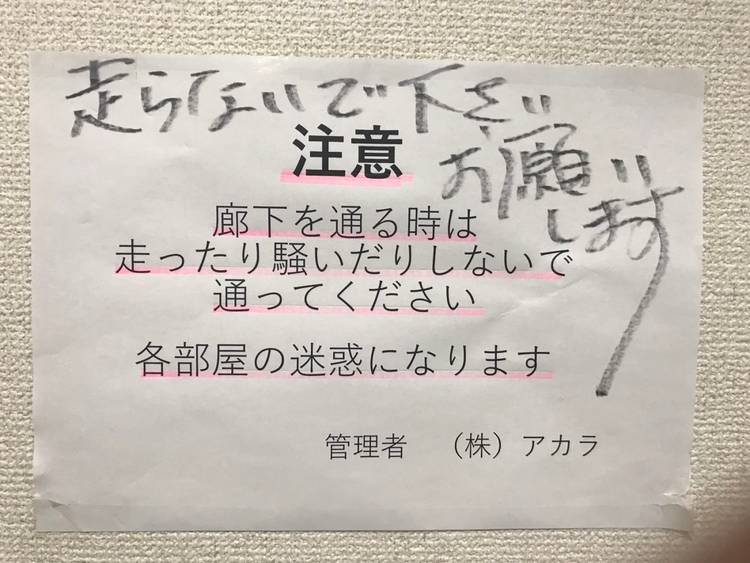 走らないで下さい
お願い
します
注意
廊下を通る時は
走ったり騒いだりしないで
通ってください
各部屋の迷惑になります
管理者　（株）アカラ